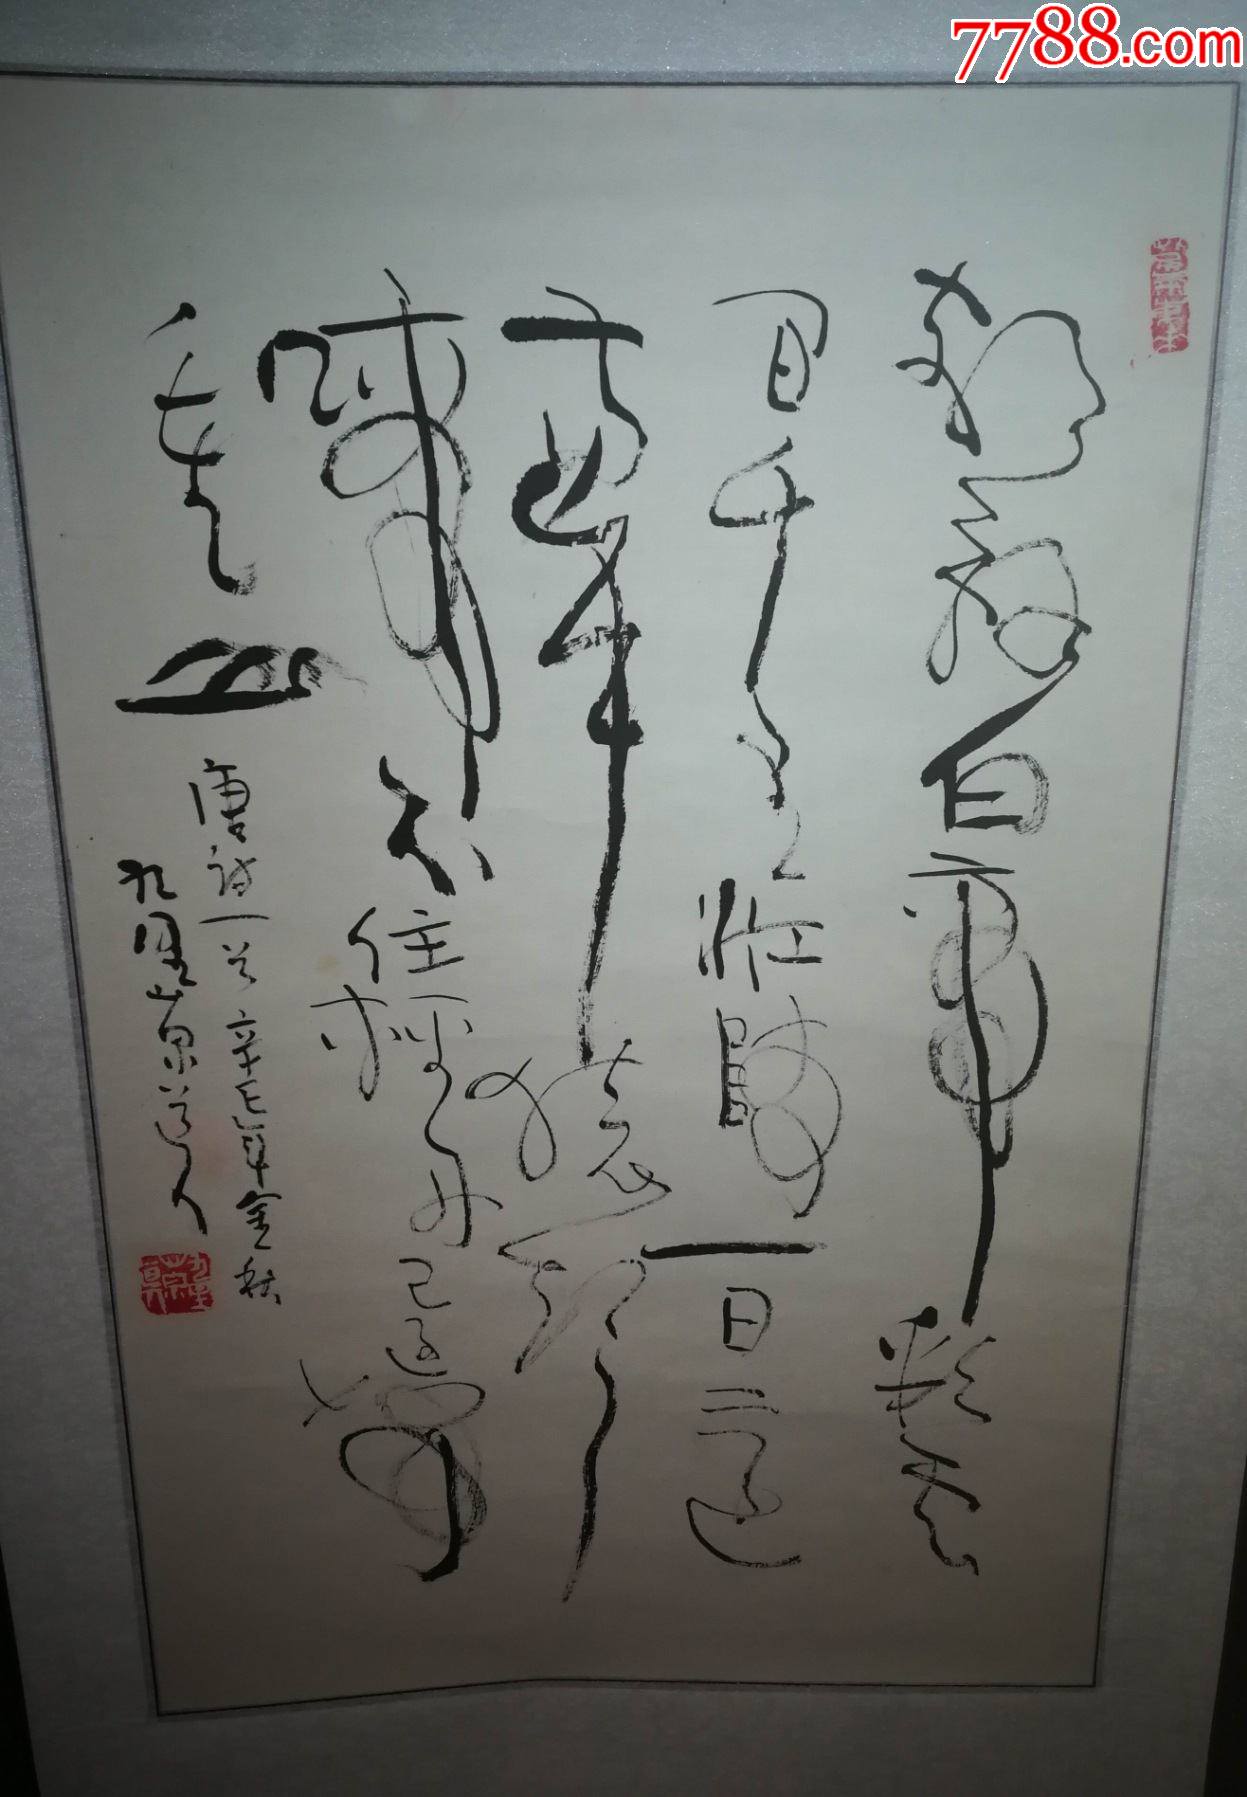 7788.com
朝辞白帝彩云
间千里江陵一日還
两岸猿声
啼不住轻舟已过万
重山
唐诗一首 辛巳年金秋
道人